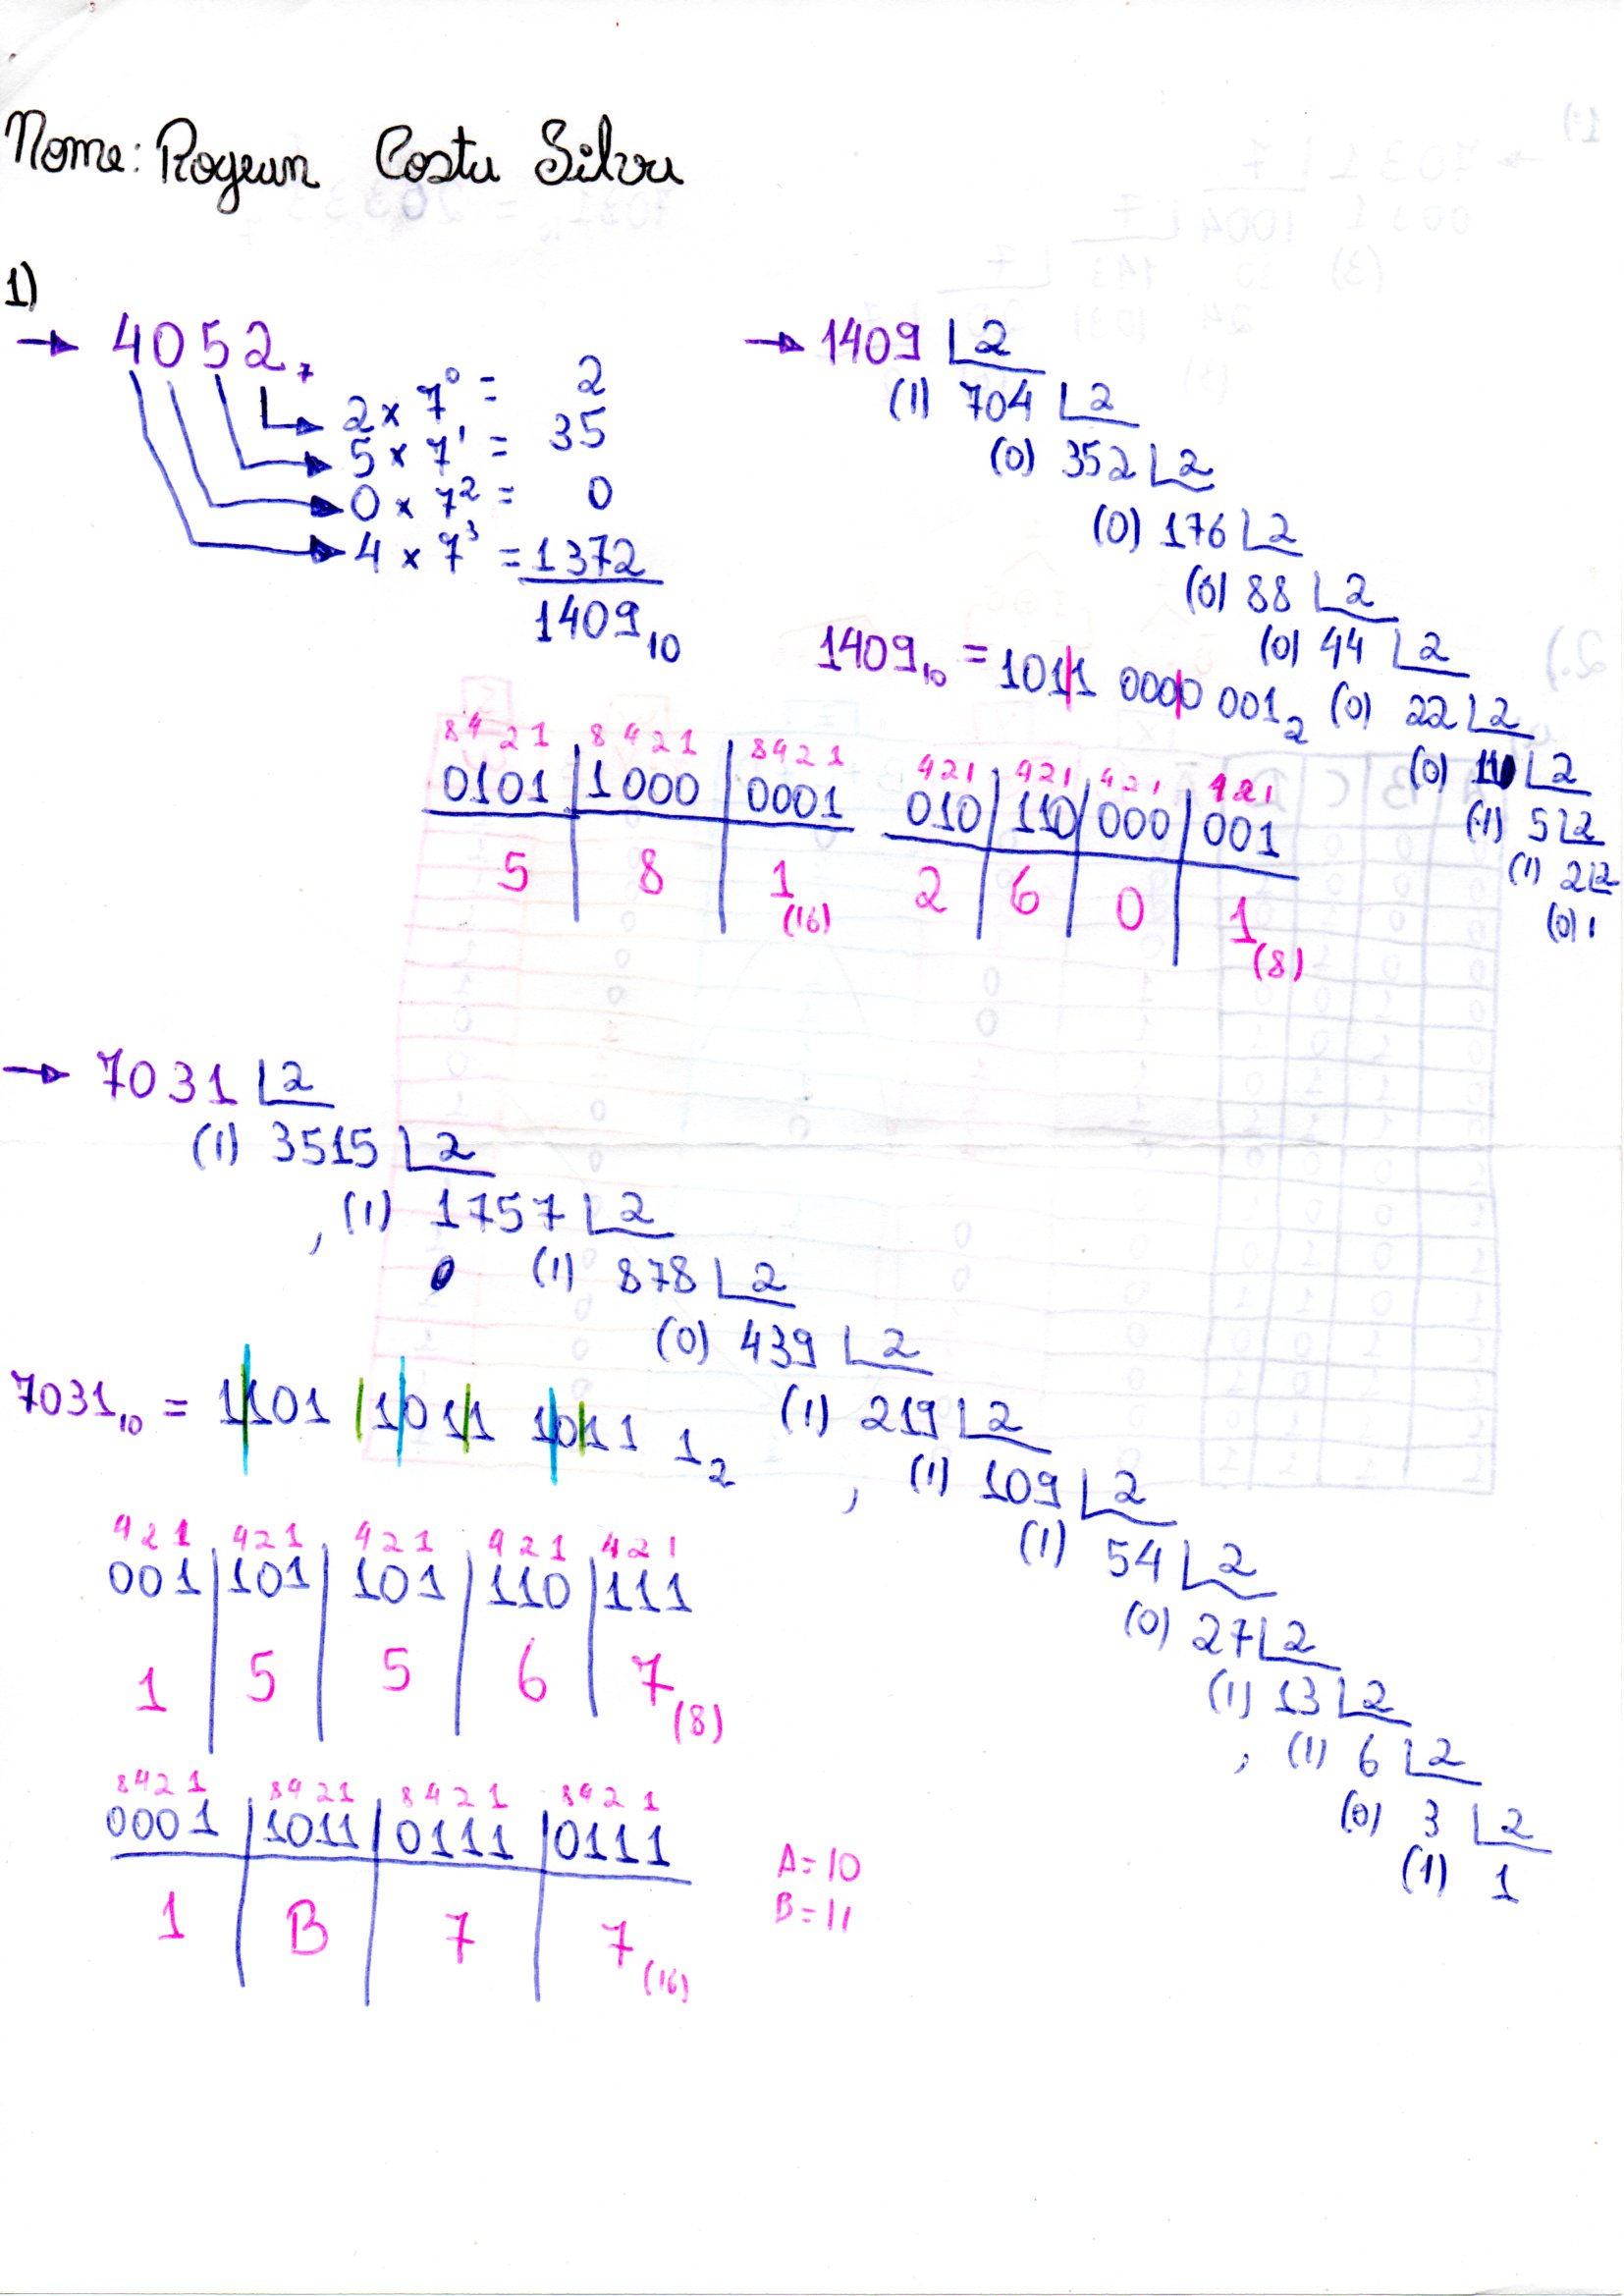 Nome: Rogean Costa Silva
1)
→ 4052₇
2 x 7⁰ = 2
5 x 7¹ = 35
0 x 7² = 0
4 x 7³ = 1372
1409₁₀
→ 1409 2
(1) 704 2
(0) 352 2
(0) 176 2
(0) 88 2
(0) 44 2
(0) 22 2
(0) 11 2
(1) 5 2
(1) 2 2
(0) 1
1409₁₀ = 1011 0000 001₂
8421 8421 8421
0101 1000 0001
5 8 1(16)
421 421 421 421
010 110 000 001
2 6 0 1(8)
→ 7031 2
(1) 3515 2
(1) 1757 2
(1) 878 2
(0) 439 2
(1) 219 2
(1) 109 2
(1) 54 2
(0) 27 2
(1) 13 2
(1) 6 2
(0) 3 2
(1) 1
7031₁₀ = 1101 1011 1011 1₂
421 421 421 421 421
001 101 101 110 111
1 5 5 6 7(8)
8421 8421 8421 8421
0001 1011 0111 0111
1 B 7 7(16)
A=10
B=11